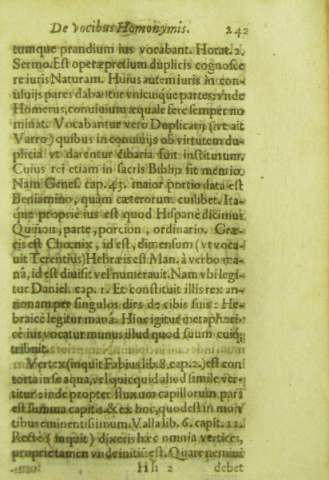 De Vocibus Homonymis. 242
tumque prandium ius vocabant. Horat. 2.
Sermo. Est operæpretium duplicis cognoscere
re iuris Naturam. Huius autem iuris in con-
uiuijs pares dabantur vnicuique partes: vnde
Homerus, conuiuium æquale fere semper no
minat. Vocabantur vero Duplicarij (vt ait
Varro) quibus in conuiuijs ob virtutem du-
plicia vt darentur cibaria fuit institutum.
Cuius rei etiam in sacris Biblijs fit mentio.
Nam Genes. cap. 43. maior portio data est
Beniamino, quam cæterorum cuilibet. Ita-
que proprie ius est quod Hispane dicimus
Quiñon, parte, porcion, ordinario. Græ-
cis est Chœnix, id est, dimensum (vt voca-
uit Terentius) Hebræis est Man. à verbo ma-
nà, id est diuisit vel numerauit. Nam vbi legi-
tur Daniel. cap. 1. Et constituit illis rex an-
nonam per singulos dies de cibis suis: He-
braicè legitur manà. Hinc igitur metaphori-
cè ius vocatur munus illud quod suum cuiq;
tribuit.
Vertex (inquit Fabius lib. 8. cap. 2.) est con
torta in se aqua, vel quicquid aliud simile ver-
titur: inde propter fluxum capillorum pars
est summa capitis & ex hoc, quod est in mon
tibus eminentissimum. Valla lib. 6. cap. 22.
Rectè (inquit) dixeris hæc omnia vertices,
proprie tamen vnde initium est. Quare nemini
Hh 2 debet